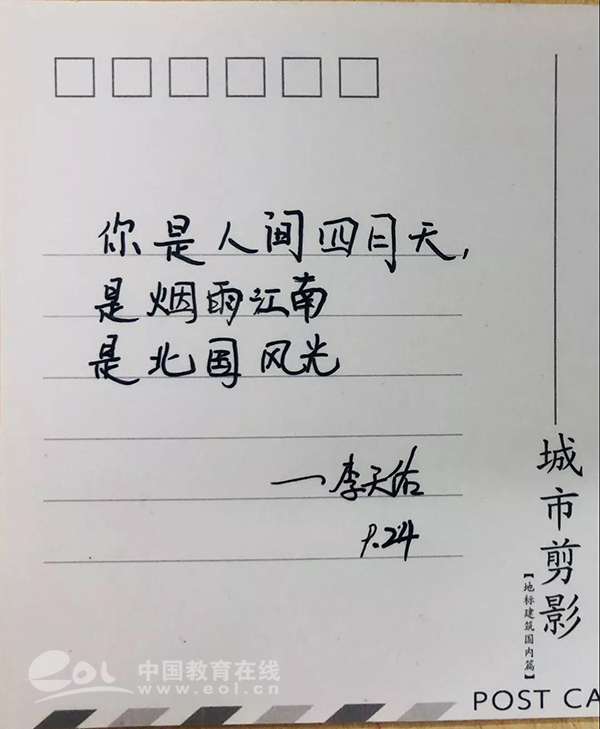 你是人间四月天，
是烟雨江南
是北国风光
—李天佑
9.24
城市剪影
【地标建筑国内篇】
POST CA
eol 中国教育在线
www.eol.cn